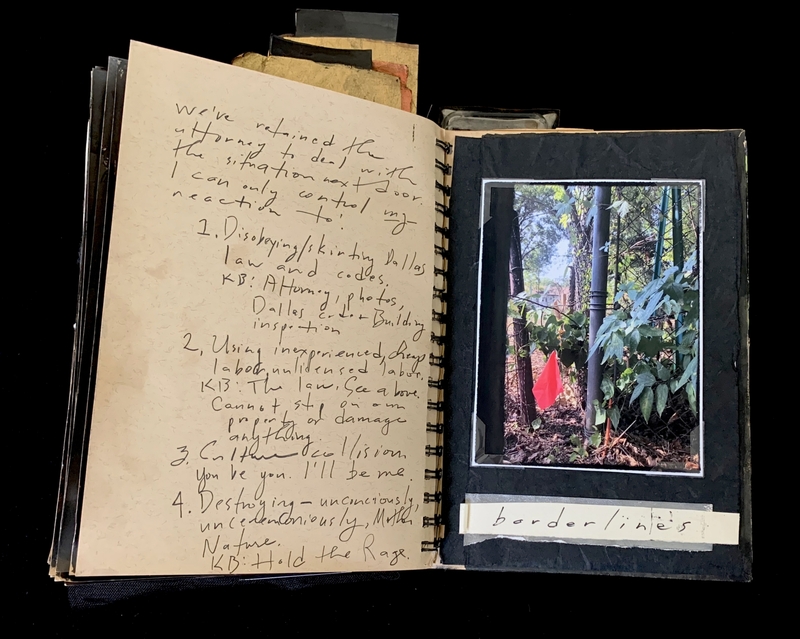 We've retained the
attorney to deal with
the situation next door.
I can only control my
reaction to:
1. Disobeying/skirting Dallas
law and codes.
KB: Attorney, photos,
Dallas code Building
inspection
2. Using inexperienced, cheap
labor, unlicensed labor.
KB: The law. See above.
Cannot step on our
property or damage
anything.
3. Culture collision
You be you. I'll be me.
4. Destroying – unconciously,
unceremoniously, Mother
Nature.
KB: Hold the Rage.
borderlines